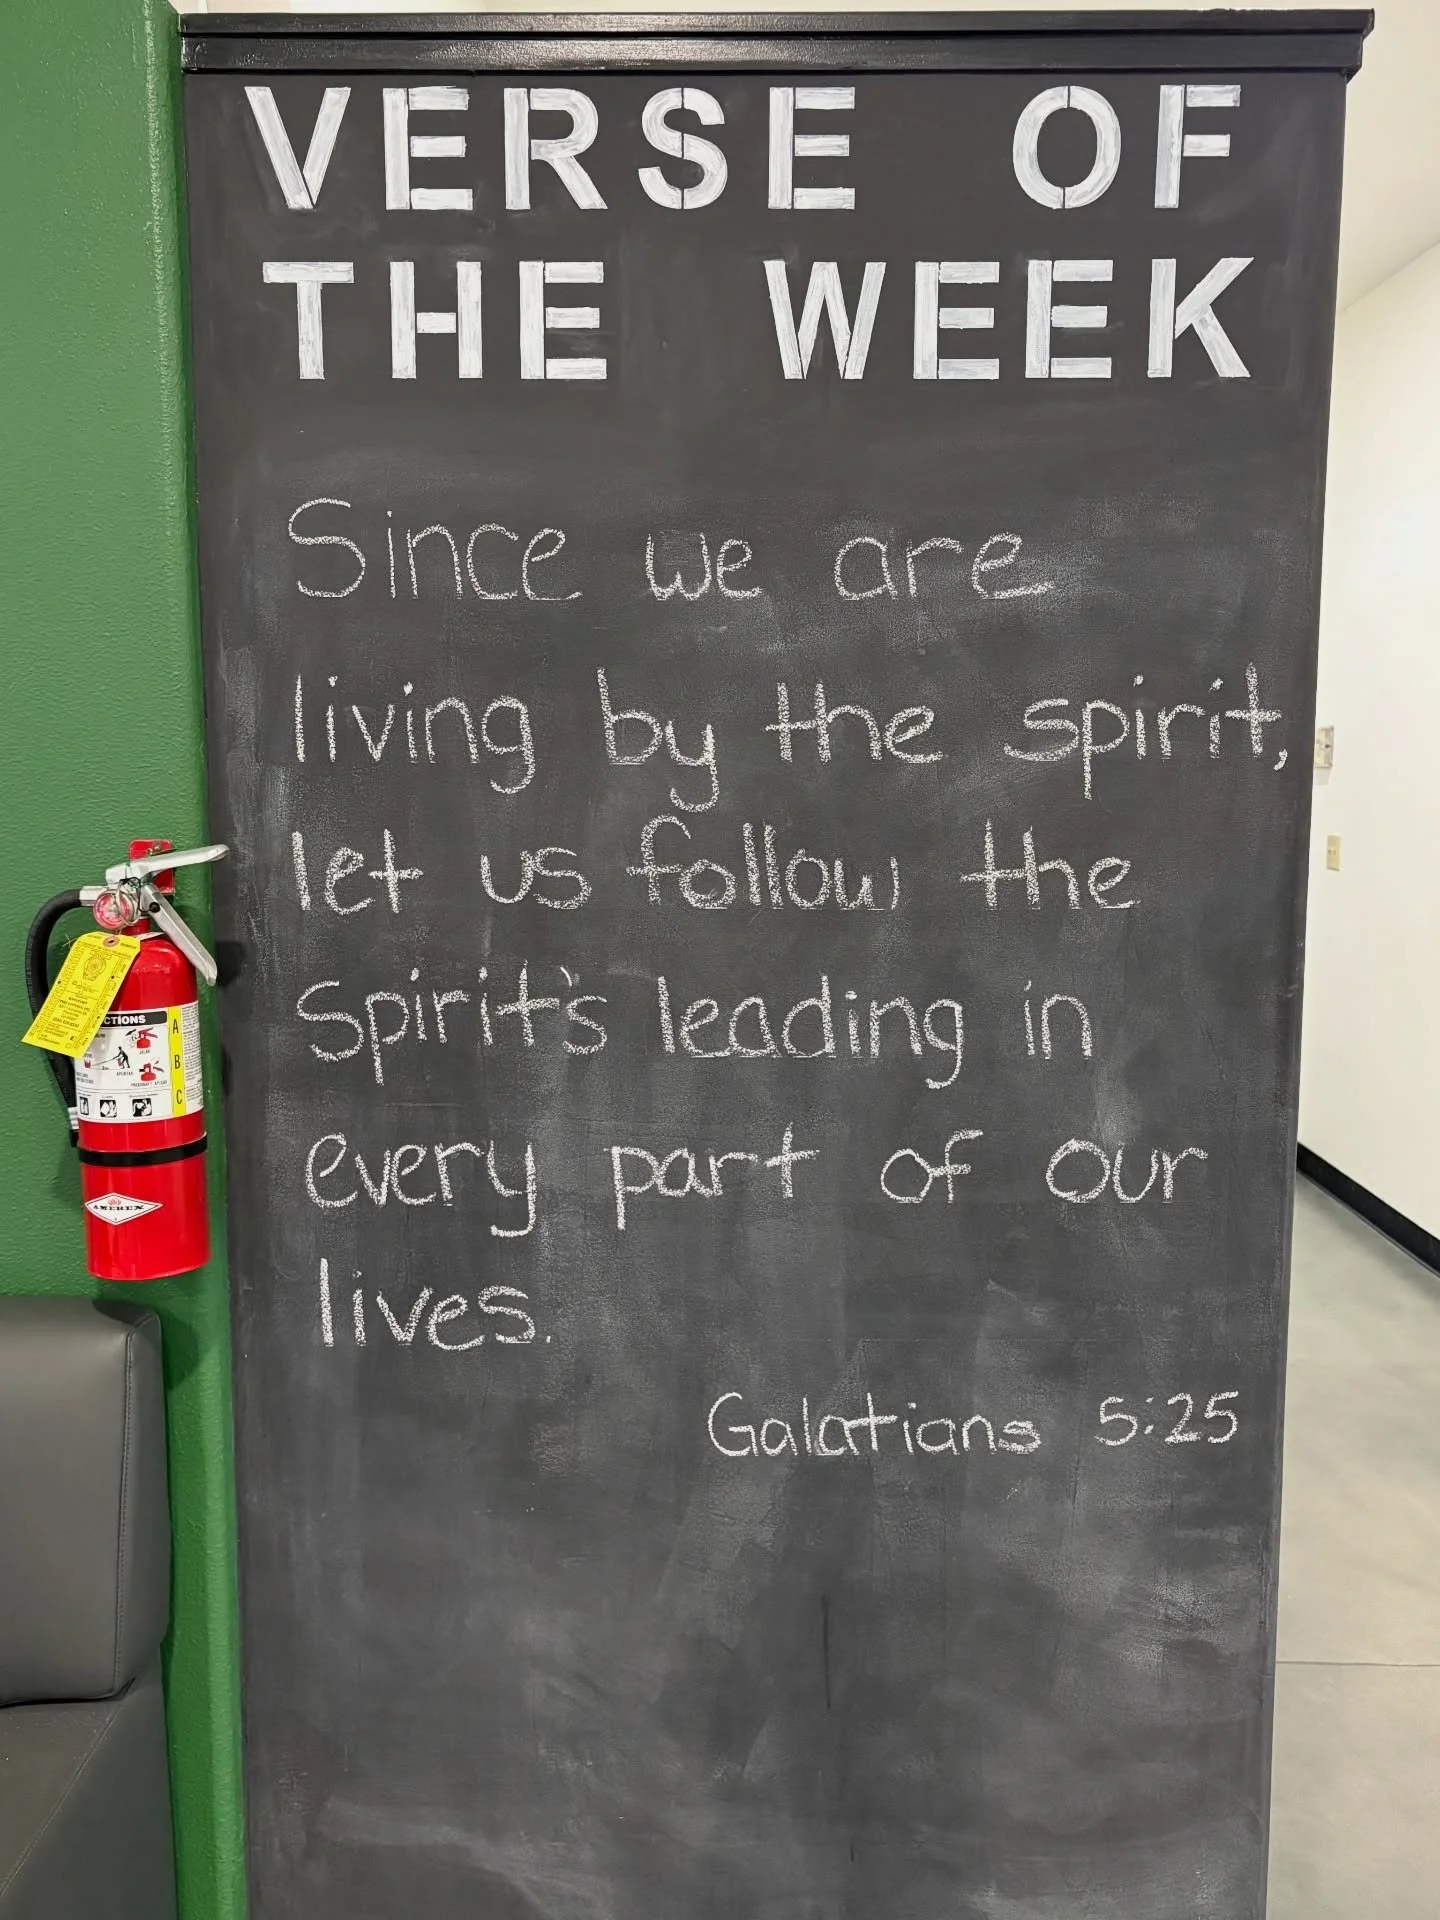 VERSE OF
THE WEEK
Since we are
living by the spirit,
let us follow the
Spirit's leading in
every part of our
lives.
Galatians 5:25
CTIONS
A
B
C
AMEREX